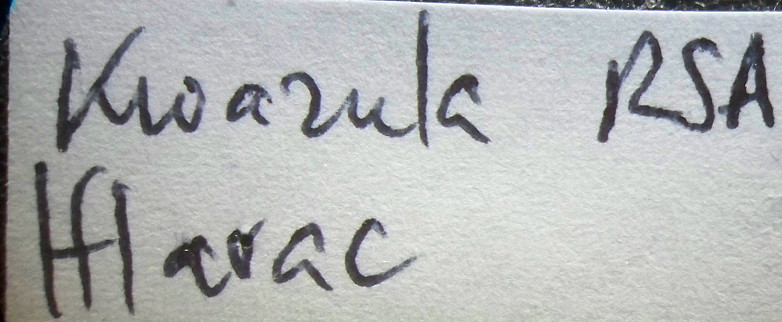 Kwazula RSA
Hlavac